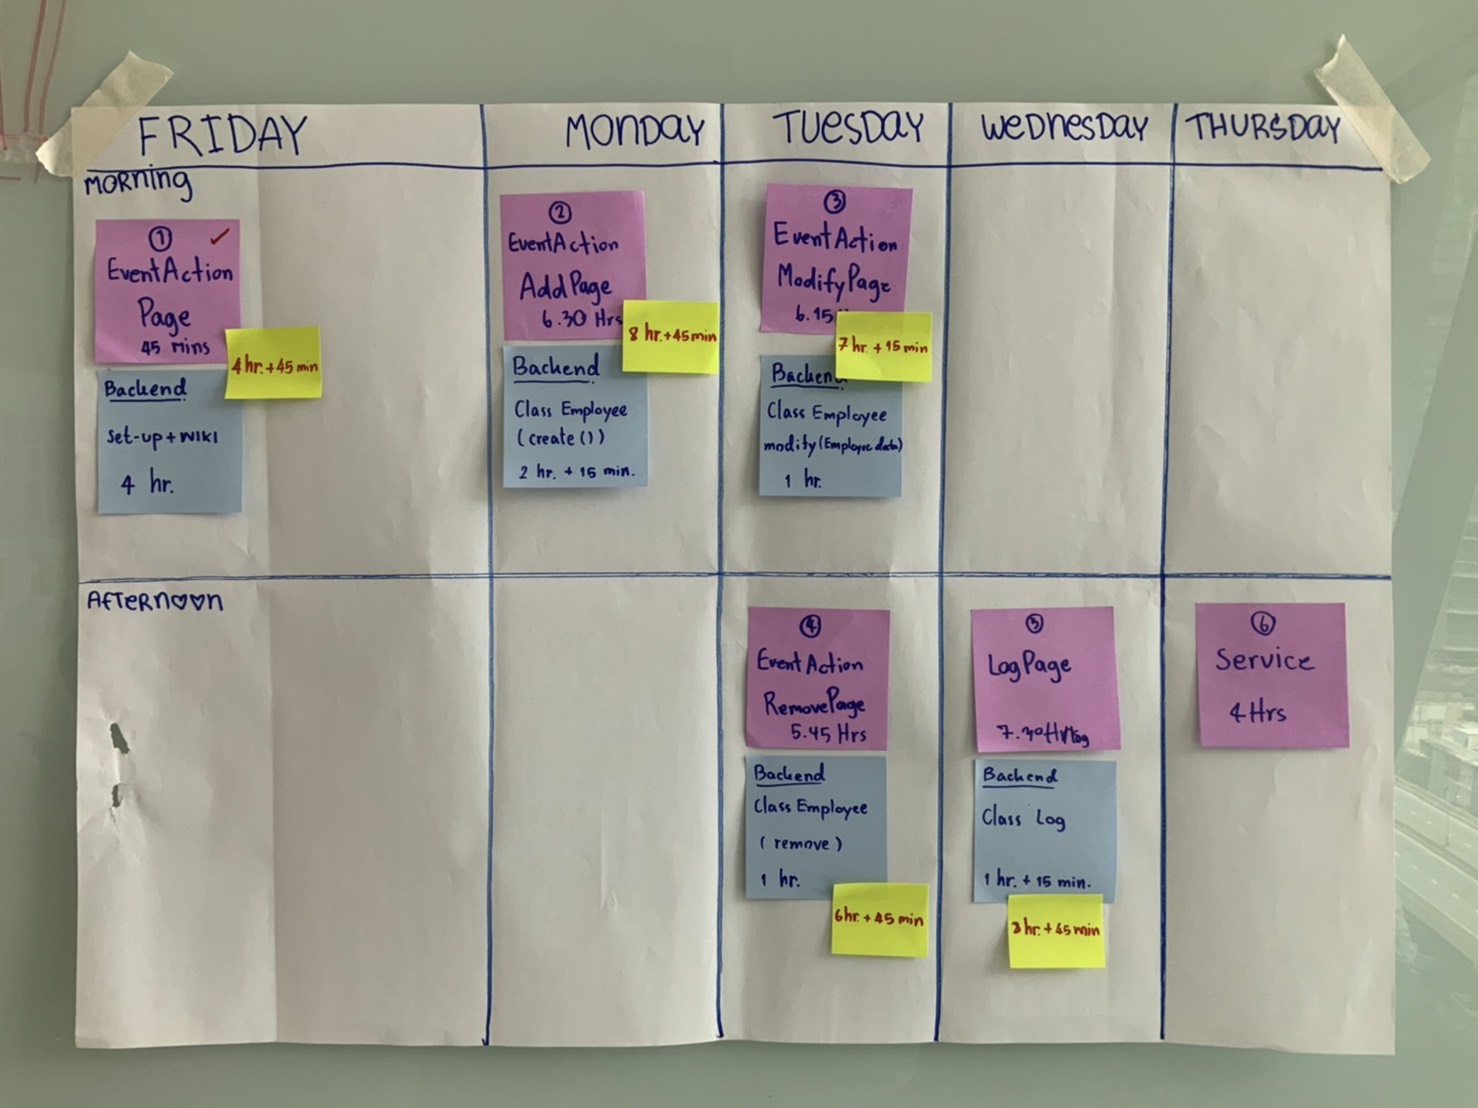 FRIDAY
MONDAY
TUESDAY
WEDNESDAY
THURSDAY
MORNING
1
EventAction
Page
45 mins
4 hr. + 45 min
Backend
Set-up + WIKI
4 hr.
2
EventAction
AddPage
6.30 Hrs
8 hr. + 45 min
Backend
Class Employee
(create())
2 hr. + 15 min.
3
EventAction
ModifyPage
6.15
7 hr + 15 min
Backend
Class Employee
modify (Employee data)
1 hr.
AFTERNOON
4
EventAction
RemovePage
5.45 Hrs
Backend
Class Employee
(remove)
1 hr.
6 hr. + 45 min
5
LogPage
Backend
Class Log
1 hr. + 15 min.
hr. + 45 min
6
Service
4 Hrs